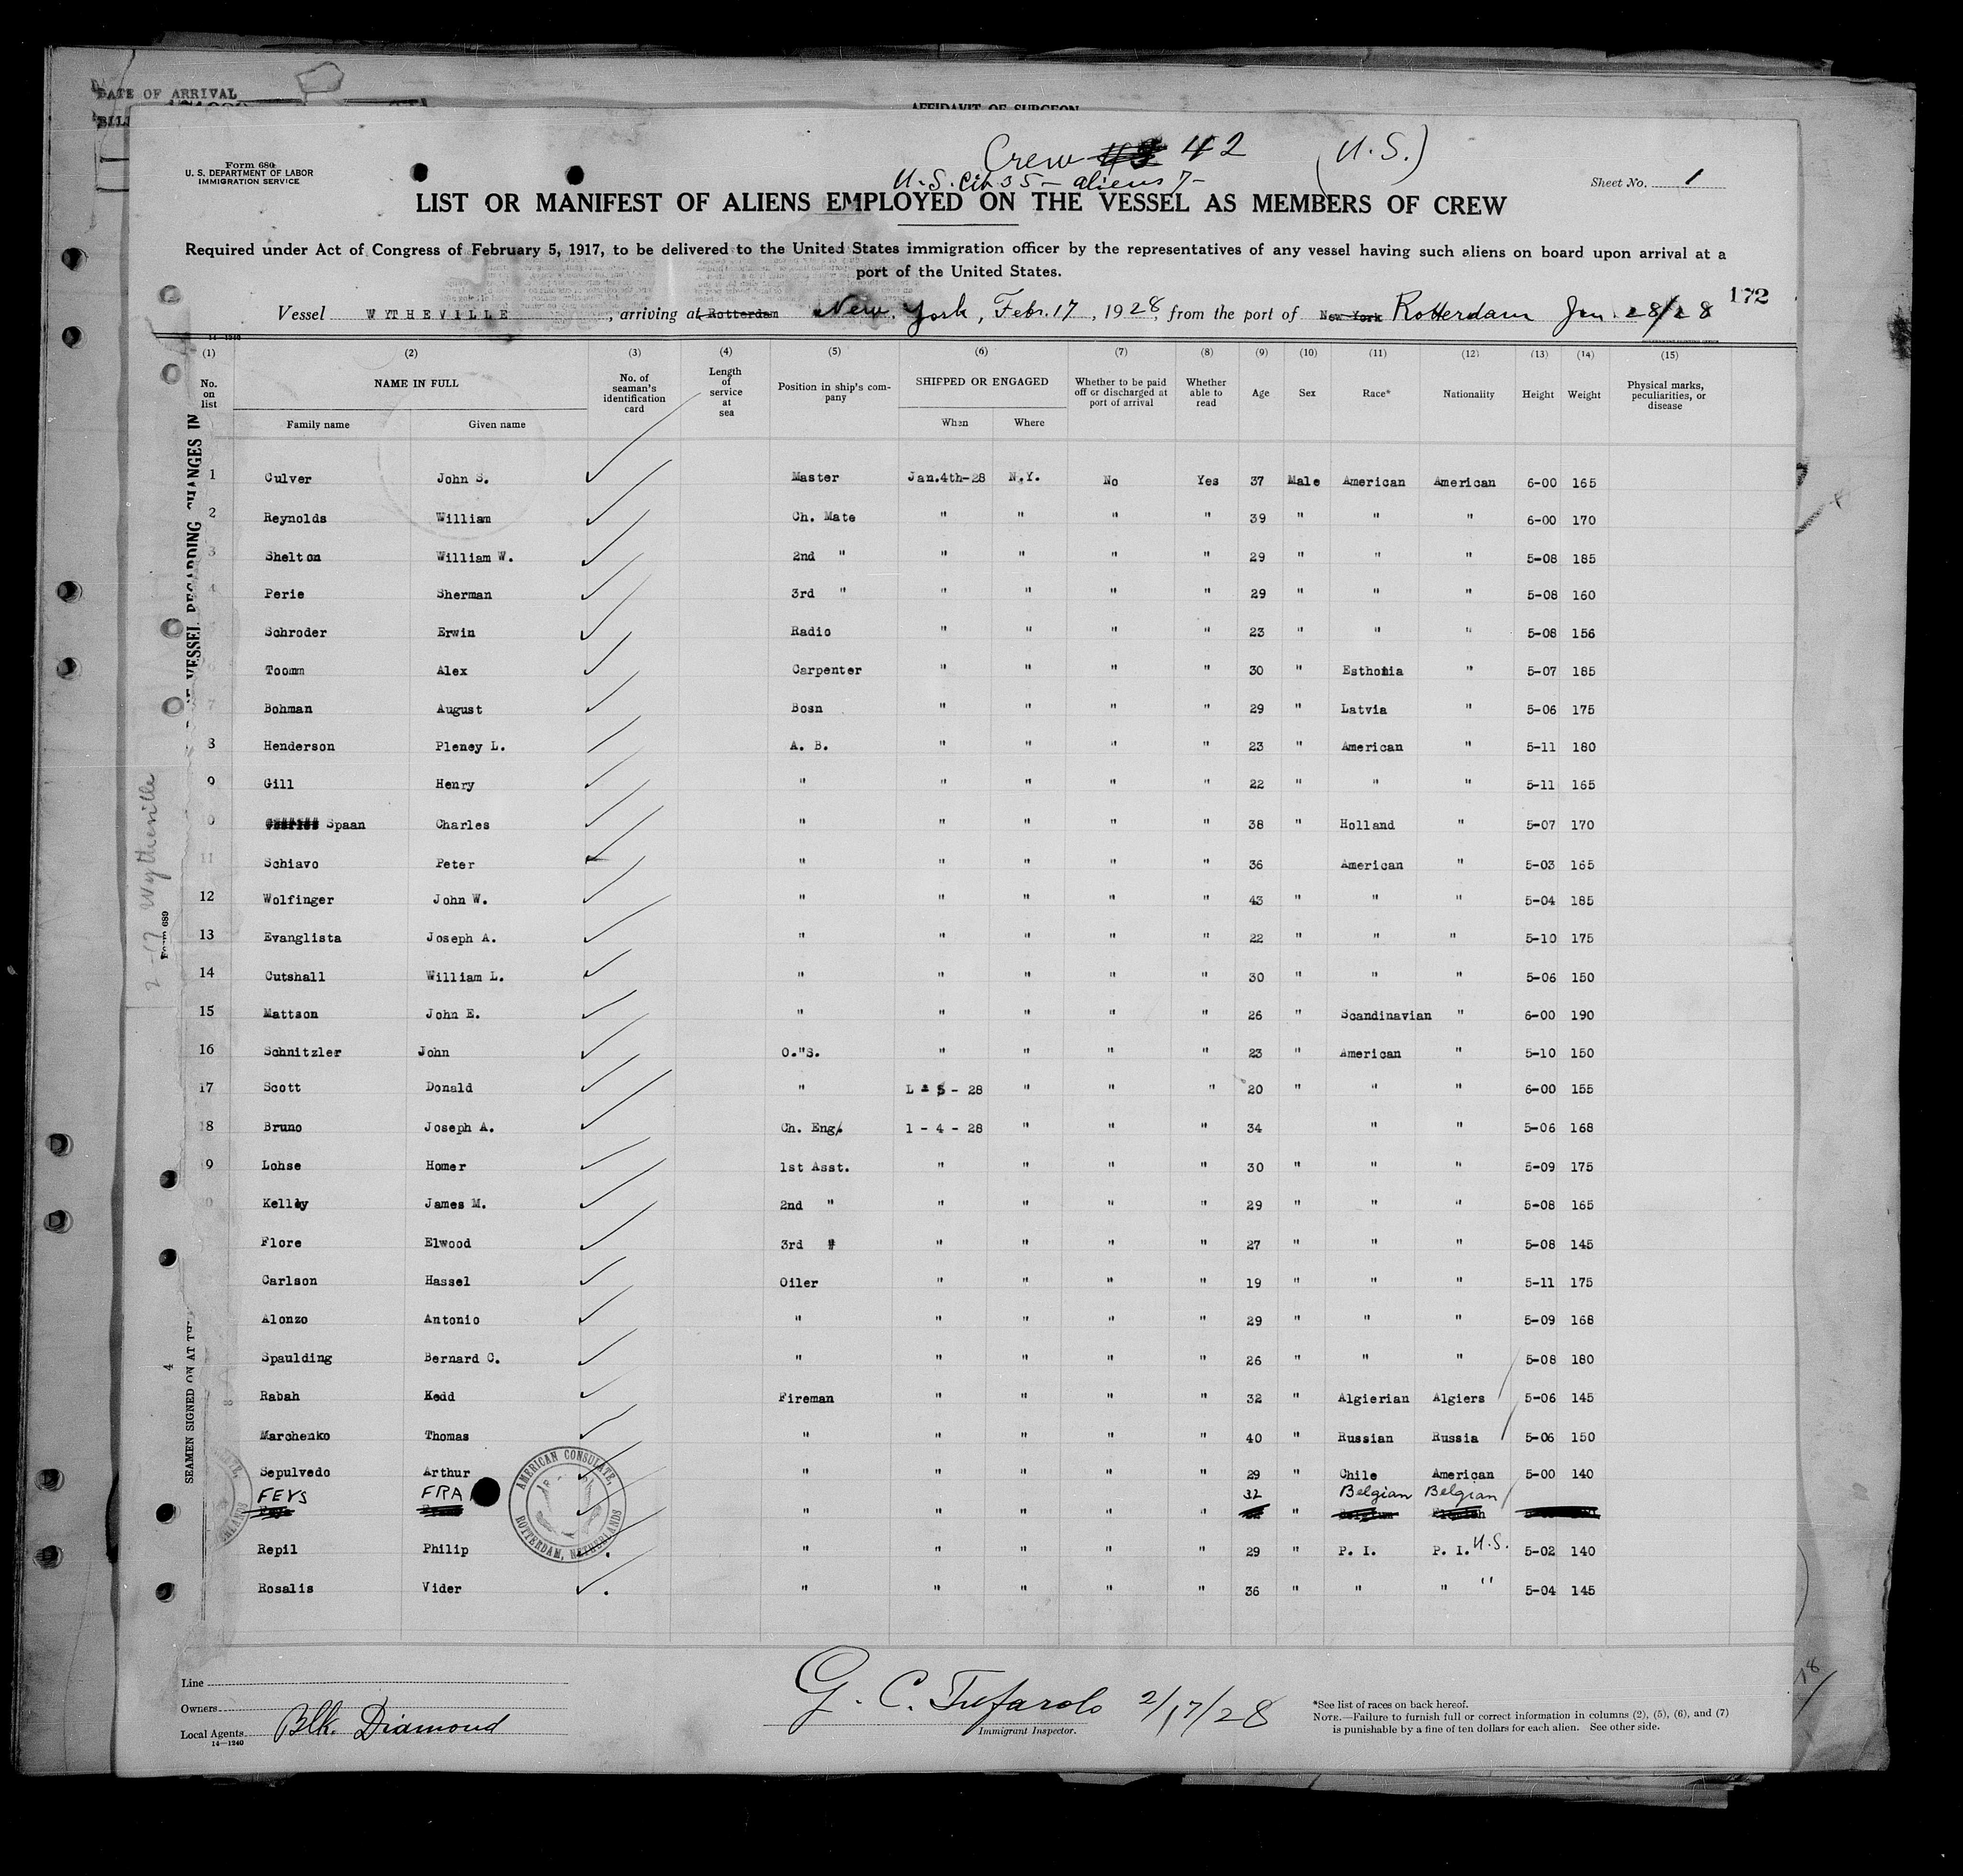 DATE OF ARRIVAL
AFFIDAVIT OF SURGEON
Form 680
U. S. DEPARTMENT OF LABOR
IMMIGRATION SERVICE
Crew 42 (U.S.)
U.S. Cit 35 - aliens 7 -
Sheet No. 1
LIST OR MANIFEST OF ALIENS EMPLOYED ON THE VESSEL AS MEMBERS OF CREW
Required under Act of Congress of February 5, 1917, to be delivered to the United States immigration officer by the representatives of any vessel having such aliens on board upon arrival at a
port of the United States.
172
Vessel WYTHEVILLE, arriving at Rotterdam New York, Febr. 17, 1928, from the port of New York Rotterdam Jan. 28/28
14-1240
(1) (2) (3) (4) (5) (6) (7) (8) (9) (10) (11) (12) (13) (14) (15)
No. on list NAME IN FULL Family name Given name No. of seaman's identification card Length of service at sea Position in ship's company SHIPPED OR ENGAGED When Where Whether to be paid off or discharged at port of arrival Whether able to read Age Sex Race* Nationality Height Weight Physical marks, peculiarities, or disease
1 Culver John S. Master Jan.4th-28 N.Y. No Yes 37 Male American American 6-00 165
2 Reynolds William Ch. Mate " " " " 39 " " " 6-00 170
3 Shelton William W. 2nd " " " " " 29 " " " 5-08 185
4 Perie Sherman 3rd " " " " " 29 " " " 5-08 160
Schroder Erwin Radio " " " " 23 " " " 5-08 156
6 Toomm Alex Carpenter " " " " 30 " Esthonia " 5-07 185
7 Bohman August Bosn " " " " 29 " Latvia " 5-06 175
8 Henderson Pleney L. A. B. " " " " 23 " American " 5-11 180
9 Gill Henry " " " " " 22 " " " 5-11 165
0 Spaan Charles " " " " " 38 " Holland " 5-07 170
11 Schiavo Peter " " " " " 36 American " 5-03 165
12 Wolfinger John W. " " " " " 43 " " " 5-04 185
13 Evanglista Joseph A. " " " " " 22 " " " 5-10 175
14 Cutshall William L. " " " " " 30 " " " 5-06 150
15 Mattson John E. " " " " " 26 " Scandinavian " 6-00 190
16 Schnitzler John O."S. " " " " 23 " American " 5-10 150
17 Scott Donald " 28 " " " 20 " " " 6-00 155
18 Bruno Joseph A. Ch. Eng. 1 - 4 - 28 " " " 34 " " 5-06 168
9 Lohse Homer 1st Asst. " " " " 30 " " " 5-09 175
0 Kelley James M. 2nd " " " " " 29 " " " 5-08 165
Flore Elwood 3rd " " " " " 27 " " " 5-08 145
Carlson Hassel Oiler " " " " 19 " " " 5-11 175
Alonzo Antonio " " " " " 29 " " " 5-09 168
Spaulding Bernard C. " " " " " 26 " " " 5-08 180
Rabah Kedd Fireman " " " " 32 " Algierian Algiers 5-06 145
Marchenko Thomas " " " " " 40 " Russian Russia 5-06 150
Sepulvedo Arthur " " " " " 29 " Chile American 5-00 140
FEYS FRA " " " " " 32 " Belgian Belgian
Repil Philip " " " " " 29 " P. I. P. I. U.S. 5-02 140
Rosalis Vider " " " " " 36 " " " " 5-04 145
AMERICAN CONSULATE, ROTTERDAM, NETHERLANDS
Line
Owners
Local Agents Blk. Diamond
14-1240
G. C. Tufarolo 2/17/28
Immigrant Inspector.
*See list of races on back hereof.
NOTE.—Failure to furnish full or correct information in columns (2), (5), (6), and (7)
is punishable by a fine of ten dollars for each alien. See other side.
VESSEL REGARDING CHANGES IN
SEAMEN SIGNED ON AT
Form 689
2-17 Wytheville